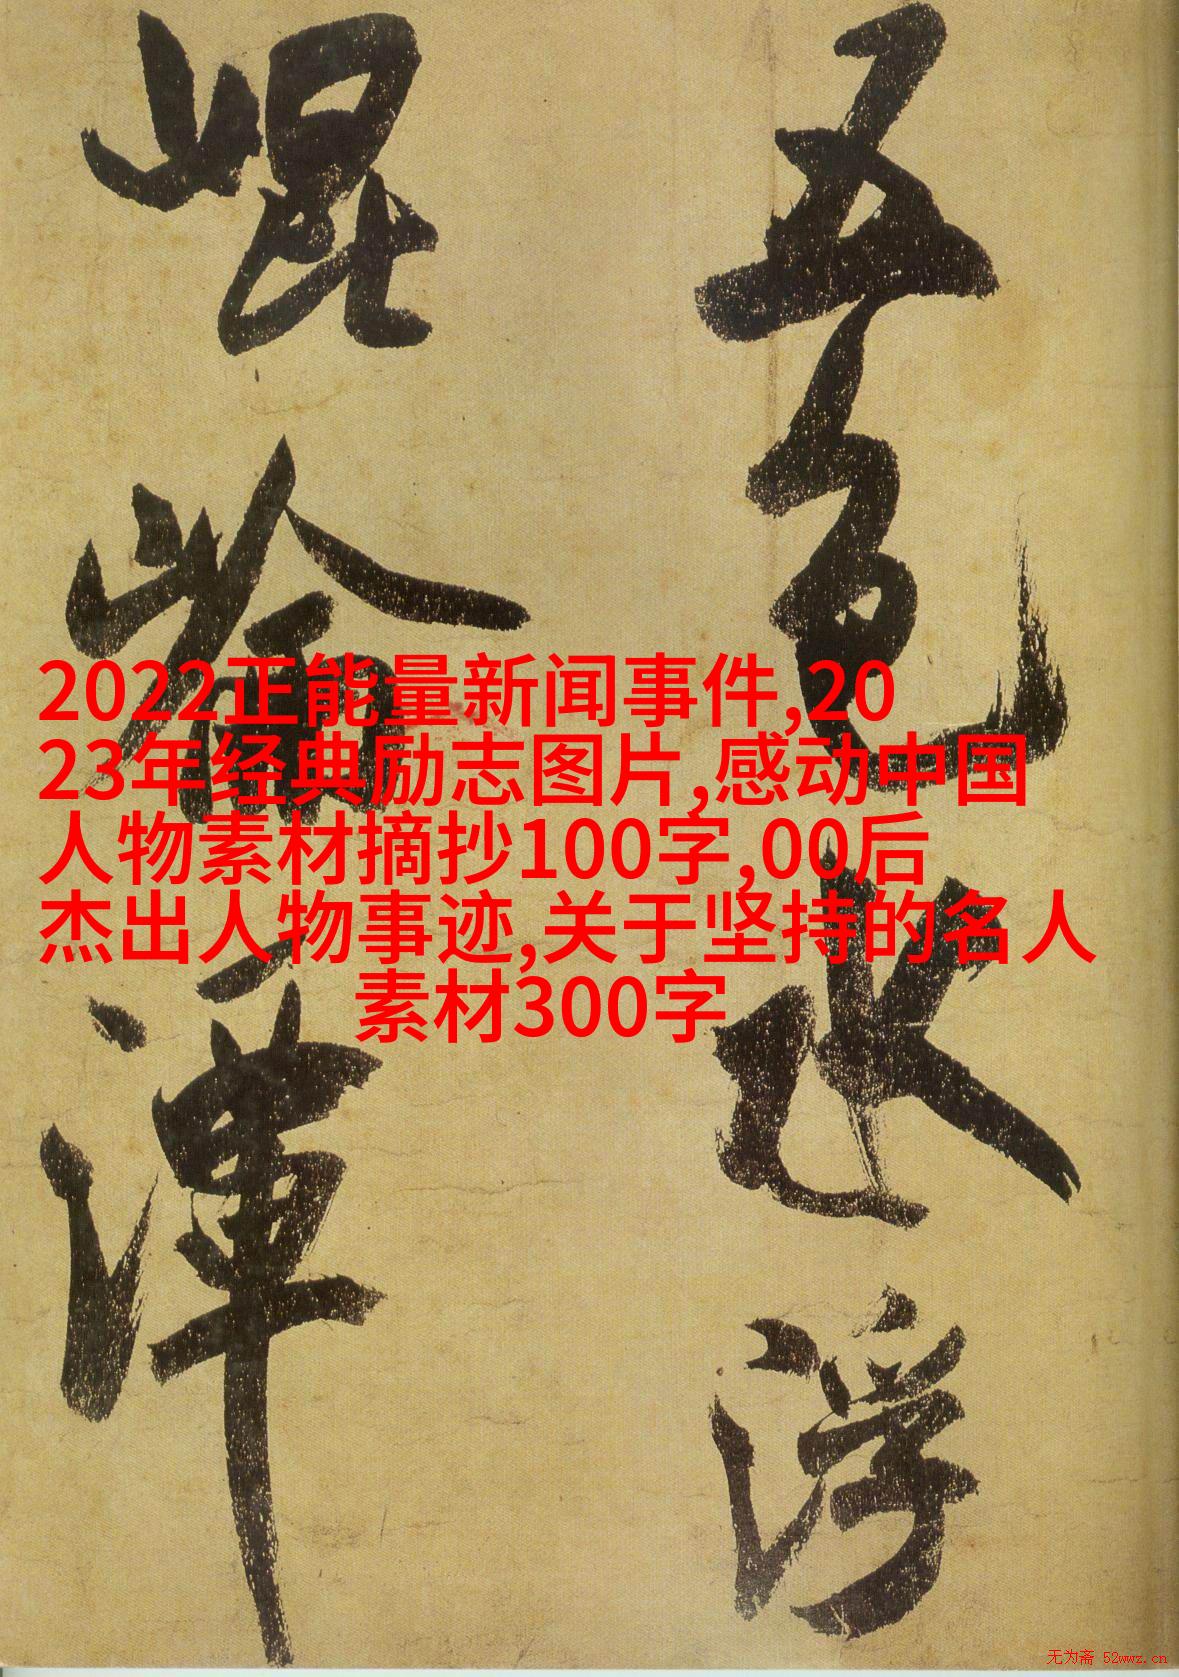 五色水浮
崐崘潭
2022正能量新闻事件,20
23年经典励志图片,感动中国
人物素材摘抄100字,00后
杰出人物事迹,关于坚持的名人
素材300字
无为斋 52wwz.cn